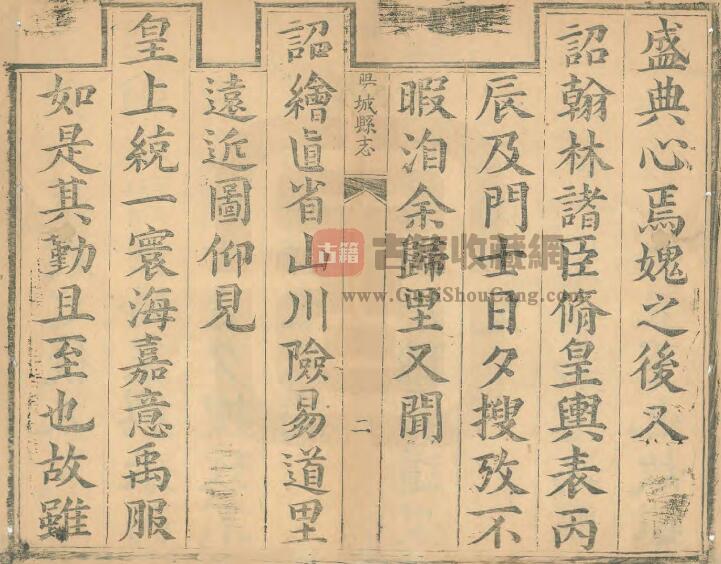 盛典心焉媿之後又
詔翰林諸臣脩皇輿表丙
辰及門士日夕搜攷不
暇洎余歸里又聞
城縣志
二
詔繪直省山川險易道里
遠近圖仰見
皇上統一寰海嘉意禹服
如是其勤且至也故雖
古籍
古籍收藏網
www.GuJiShouCang.com